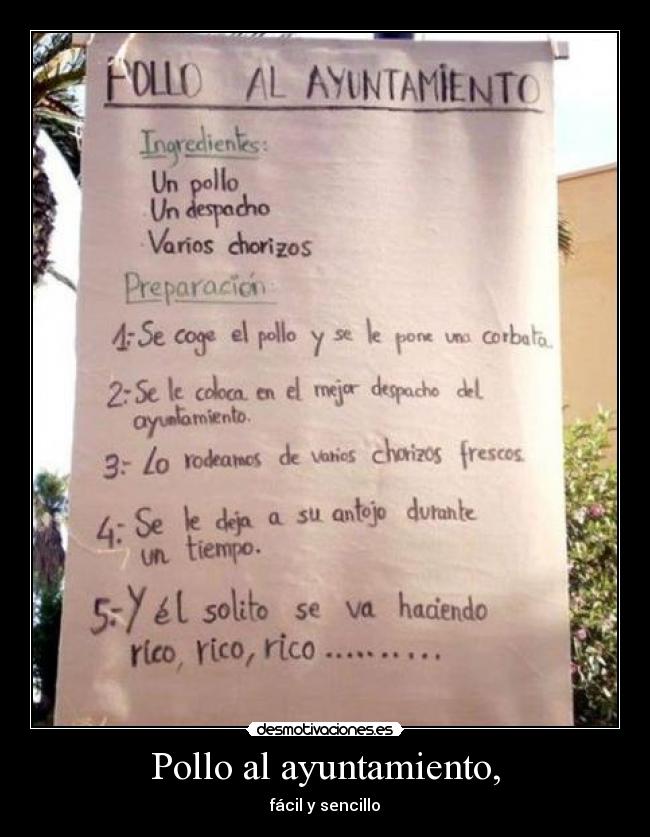 POLLO AL AYUNTAMIENTO
Ingredientes:
Un pollo
Un despacho
Varios chorizos
Preparación:
1:- Se coge el pollo y se le pone una corbata.
2:- Se le coloca en el mejor despacho del
ayuntamiento.
3:- Lo rodeamos de varios chorizos frescos.
4:- Se le deja a su antojo durante
un tiempo.
5:- Y él solito se va haciendo
rico, rico, rico ..........
desmotivaciones.es
Pollo al ayuntamiento,
fácil y sencillo